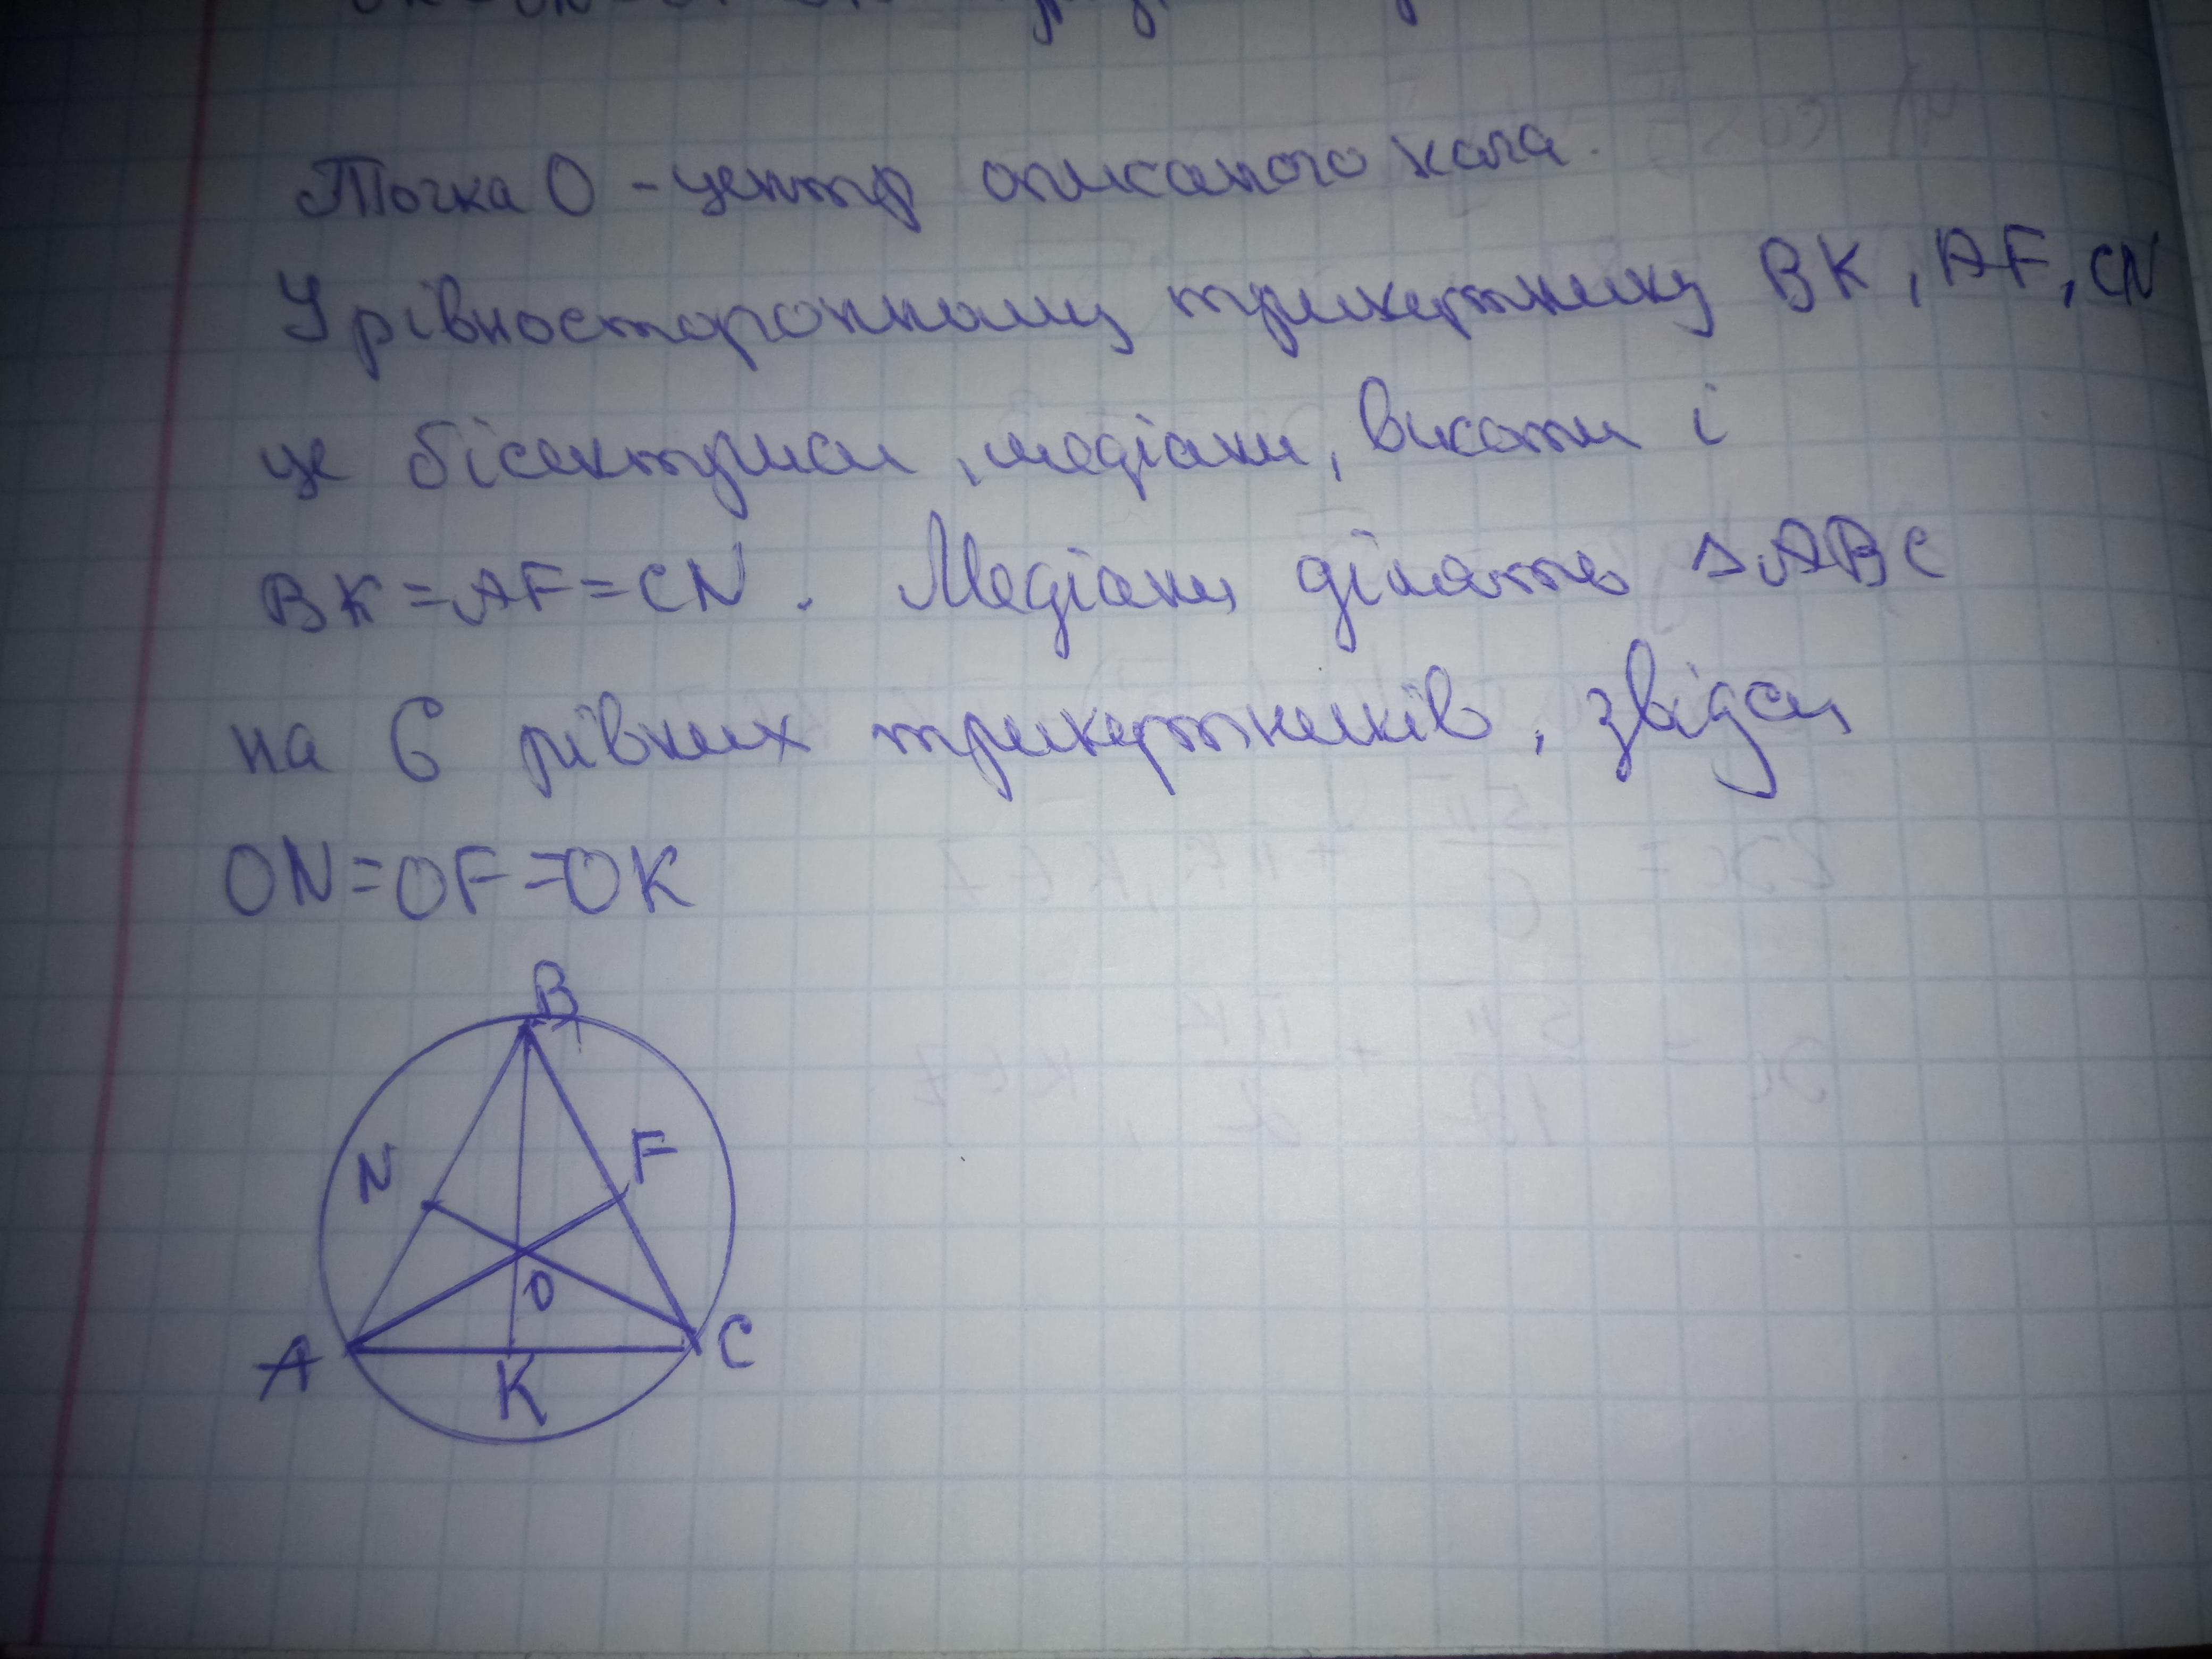 Точка О - центр описаного кола.
У рівносторонньому трикутнику BK, AF, CN
це бісектриси, медіани, висоти і
BK=AF=CN. Медіани ділять △ABC
на 6 рівних трикутників, звідси
ON=OF=OK
B
N
F
O
A
K
C